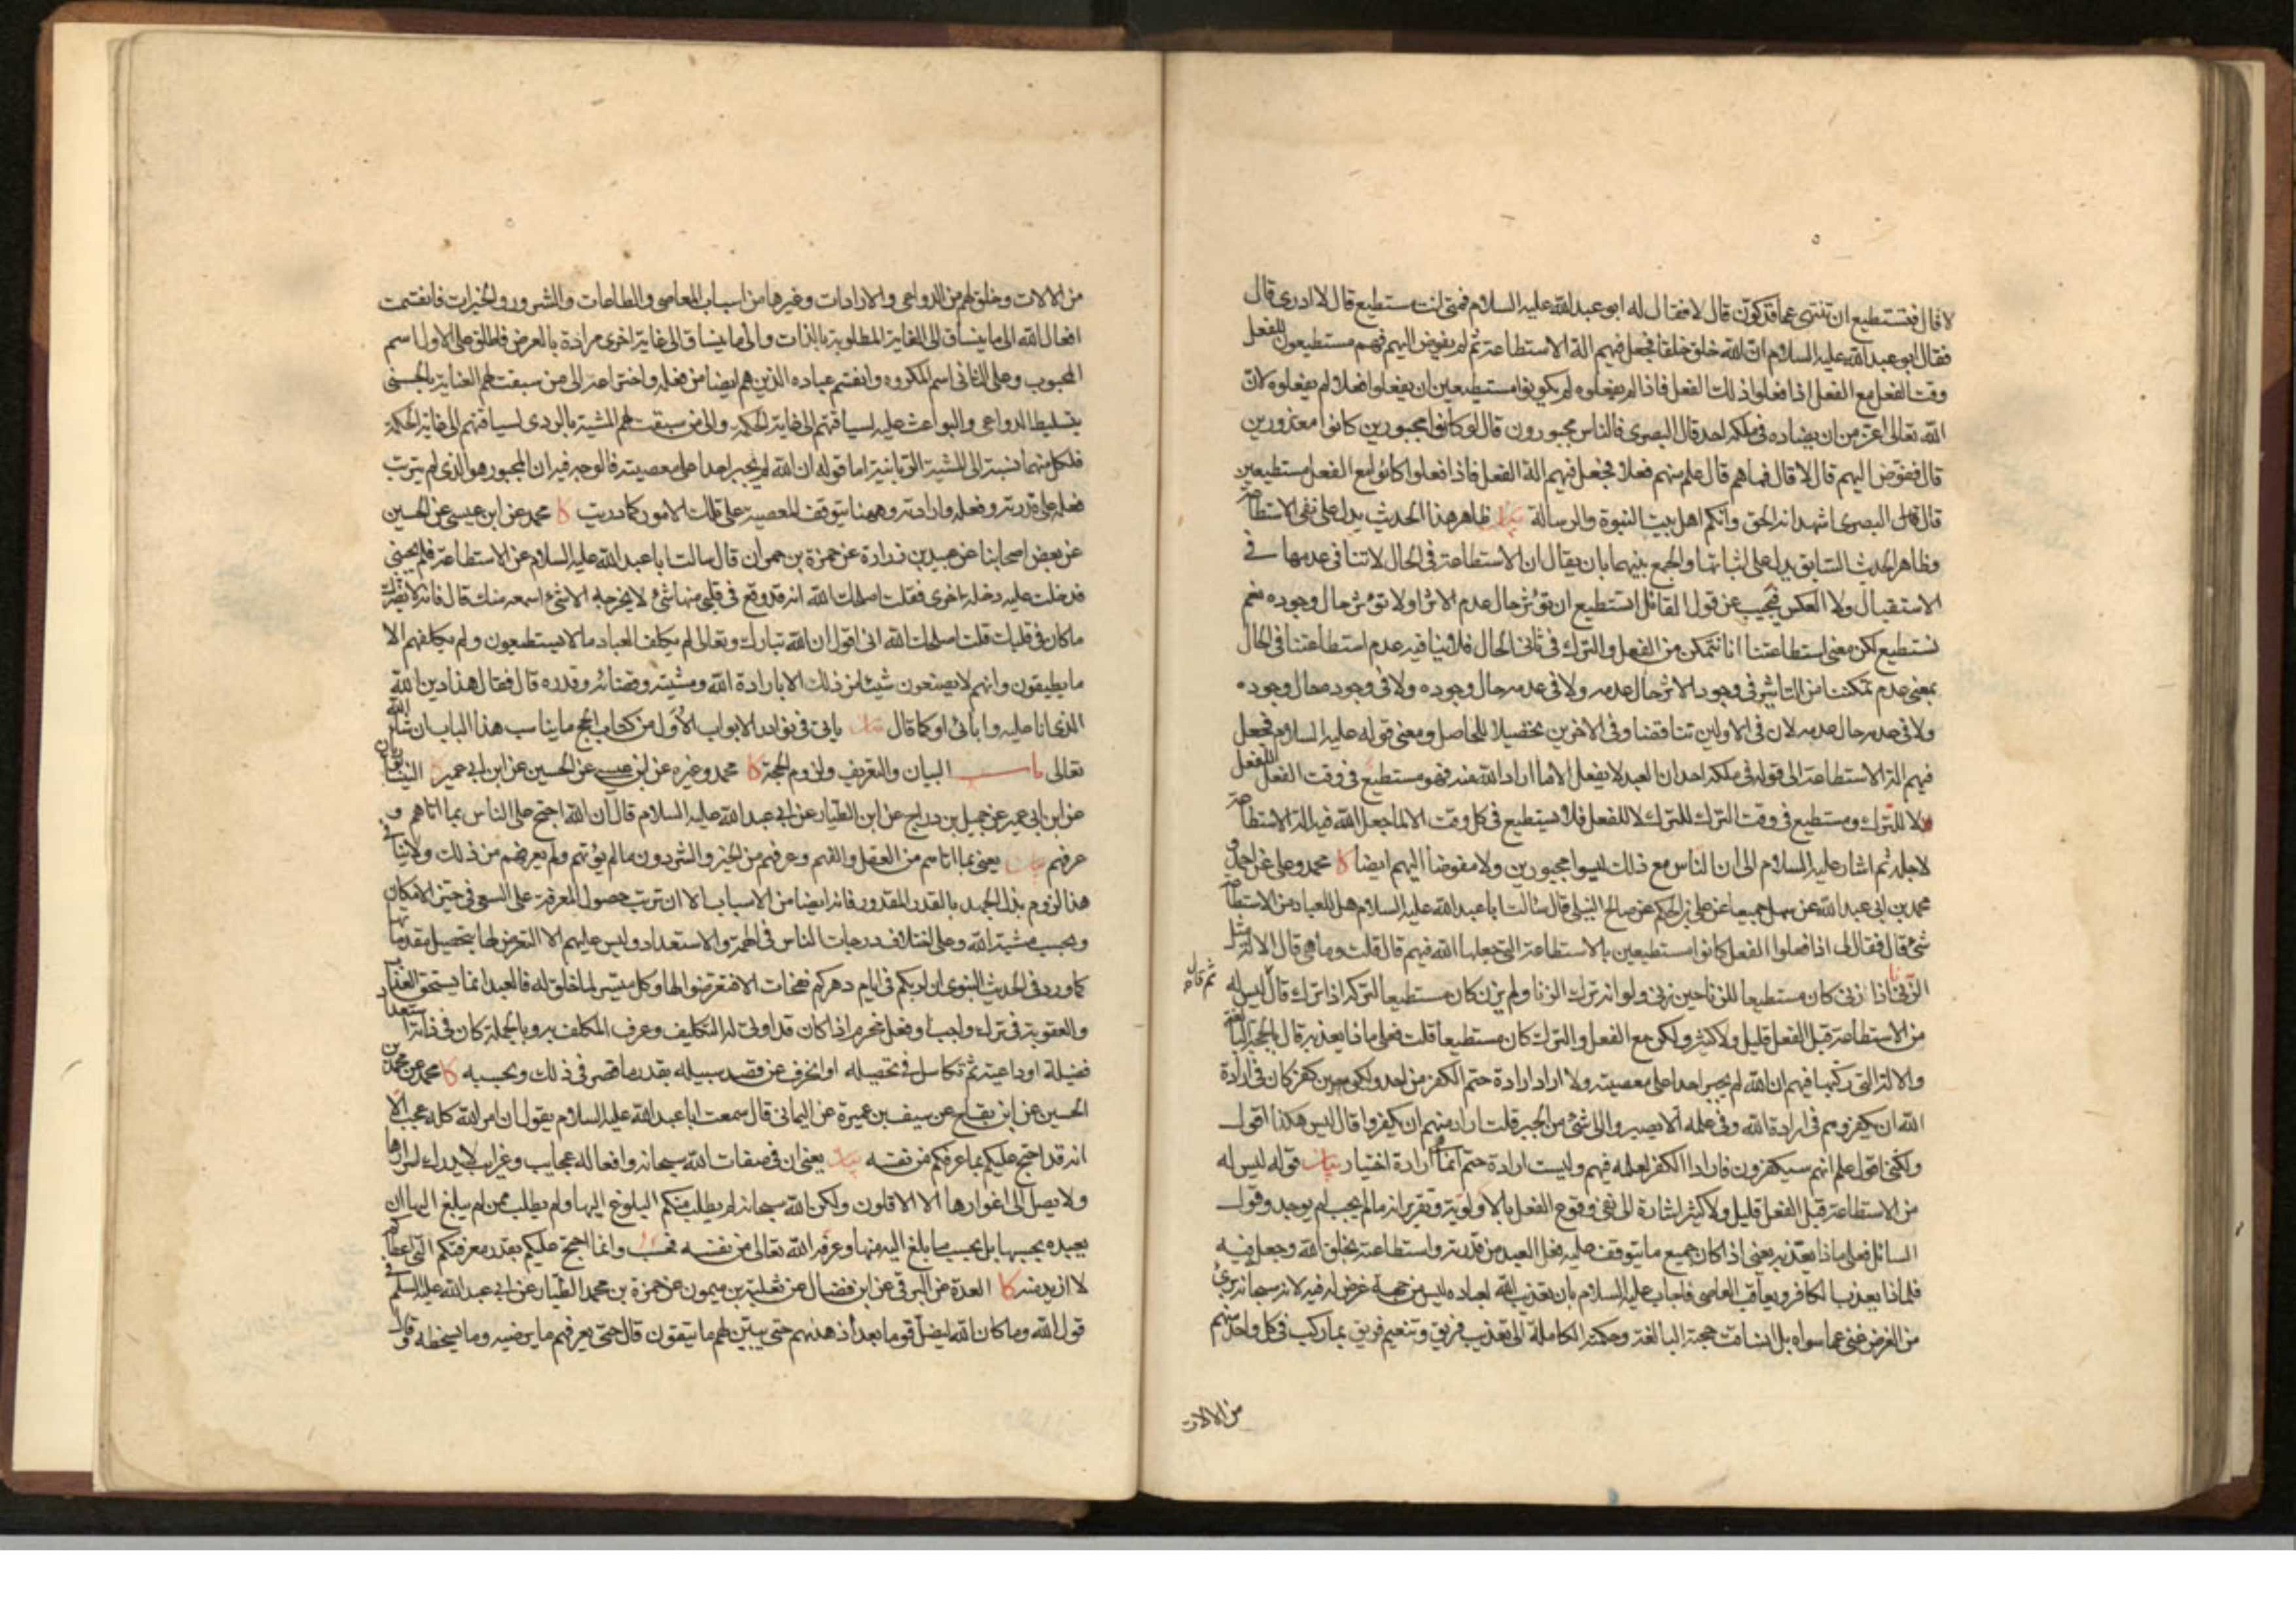 لا قال فتستطيع ان تنتهي عما قد كوّن قال لا فقال له ابو عبد الله عليه السلام فمتى انت مستطيع قال لا ادرى قال
فقال ابو عبد الله عليه السلام ان الله خلق خلقا فجعل فيهم الة الاستطاعة ثم لم يفوض اليهم فهم مستطيعون للفعل
وقت الفعل مع الفعل اذا فعلوا ذلك الفعل فاذا لم يفعلوه لم يكونوا مستطيعين ان يفعلوا فعلا لم يفعلوه لان
الله تعالى اعز من ان يضاده في ملكه احد قال البصرى فالناس مجبورون قال لو كانوا مجبورين كانوا معذورين
قال ففوض اليهم قال لا قال فما هم قال علم منهم فعلا فجعل فيهم الة الفعل فاذا فعلوا كانوا مع الفعل مستطيعين
قال قال البصرى اشهد انه الحق وانكم اهل بيت النبوة والرسالة بيان ظاهر هذا الحديث يدل على نفى الاستطاعة
وظاهر الحديث السابق يدل على اثباتها والجمع بينهما بان يقال ان الاستطاعة في الحال لا تنافى عدمها في
الاستقبال ولا العكس فنجيب عن قول القائل اتستطيع ان تؤثر حال عدم الاثر او لا تؤثر حال وجوده نعم
نستطيع لكن معنى استطاعتنا انا نتمكن من الفعل والترك في ثانى الحال فلا ينافيه عدم استطاعتنا في الحال
بمعنى عدم تمكننا من التاثير في وجود الاثر حال عدمه ولا في عدمه حال وجوده ولا في وجوده حال وجوده
ولا في عدمه حال عدمه لان في الاولين تناقضا وفى الاخرين تحصيلا للحاصل ومعنى قوله عليه السلام فجعل
فيهم الة الاستطاعة الى قوله في ملكه احد ان العبد لا يفعل الا ما اراد الله منه فهو مستطيع في وقت الفعل للفعل
لا للترك ومستطيع في وقت الترك للترك لا للفعل فلا يستطيع في كل وقت الا لما جعل الله فيه الة الاستطاعة
لاجله ثم اشار عليه السلام الى ان الناس مع ذلك ليسوا مجبورين ولا مفوضا اليهم ايضا كا محمد وعلى عن احمد و
محمد بن ابى عبد الله عن سهل جميعا عن على بن الحكم عن صالح النيلى قال سالت ابا عبد الله عليه السلام هل للعباد من الاستطاعة
شئ قال فقال لى اذا فعلوا الفعل كانوا مستطيعين بالاستطاعة التى جعلها الله فيهم قال قلت وما هى قال الالة مثل
الزنا اذا زنى كان مستطيعا للزنا حين زنى ولو انه ترك الزنا ولم يزن كان مستطيعا لتركه اذا ترك قال ثم قال ليس له
من الاستطاعة قبل الفعل قليل ولا كثير ولكن مع الفعل والترك كان مستطيعا قلت فعلى ماذا يعذبه قال بالحجة البالغة
والالة التى ركبها فيهم ان الله لم يجبر احدا على معصيته ولا اراد ارادة حتم الكفر من احد ولكن حين كفر كان في ارادة
الله ان يكفر وهم في ارادة الله وفى علمه الا يصيروا الى شئ من الخير قلت اراد منهم ان يكفروا قال ليس هكذا اقول
ولكنى اقول علم انهم سيكفرون فاراد الكفر لعلمه فيهم وليست ارادة حتم انما هى ارادة اختيار بيان قوله ليس له
من الاستطاعة قبل الفعل قليل ولا كثير اشارة الى نفى وقوع الفعل بالاولوية وتقرير انه ما لم يجب لم يوجد وقول
السائل فعلى ماذا يعذبه يعنى اذا كان جميع ما يتوقف عليه فعل العبد من قدرته واستطاعته بخلق الله وجعل فيه
فلماذا يعذب الكافر ويعاقب العاصى فاجاب عليه السلام بان تعذيب الله لعباده ليس من جهة غرض له فيه لانه سبحانه برئ
من الغرض غنى عما سواه بل انساقت حجته البالغة وحكمته الكاملة الى تعذيب فريق وتنعيم فريق بما ركب في كل واحد منهم
من الالات
من الالات وخلق لهم من الدواعى والارادات وغيرها من اسباب المعاصى والطاعات والشرور والخيرات فانقسمت
افعال الله الى ما ينساق الى الغاية المطلوبة بالذات والى ما ينساق الى غاية اخرى مرادة بالعرض فاطلق على الاول اسم
المحبوب وعلى الثانى اسم المكروه وانقسم عباده الذين هم ايضا من فعله واختراعه الى من سبقت لهم العناية بالحسنى
بتسليط الدواعى والبواعث عليه لسياقتهم الى غاية الحكمة والى من سبقت لهم المشية بالردى لسياقتهم الى غاية الحكمة
فلكل منهما نسبة الى المشية الربانية اما قوله ان الله لم يجبر احدا على معصيته فالوجه فيه ان المجبور هو الذى لم يترتب
فعله على قدرته وفعله وارادته وههنا يتوقف المعصية على تلك الامور كما دريت كا محمد عن ابن عيسى عن الحسين
عن بعض اصحابنا عن عبيد بن زرارة عن حمزة بن حمران قال سالت ابا عبد الله عليه السلام عن الاستطاعة فلم يجبنى
فدخلت عليه دخلة اخرى فقلت اصلحك الله انه قد وقع في قلبى منها شئ لا يخرجه الا شئ اسمعه منك قال فانه لا يضرك
ما كان في قلبك قلت اصلحك الله انى اقول ان الله تبارك وتعالى لم يكلف العباد ما لا يستطيعون ولم يكلفهم الا
ما يطيقون وانهم لا يصنعون شيئا من ذلك الا بارادة الله ومشيته وقضائه وقدره قال فقال هذا دين الله
الذى انا عليه وابائى او كما قال بيان ياتى في نوادر الابواب الاول من كتاب الحج ما يناسب هذا الباب ان شاء الله
تعالى باب البيان والتعريف ولزوم الحجة كا محمد وغيره عن ابن عيسى عن الحسين عن ابن ابى عمير كا النيسابوريان
عن ابن ابى عمير عن جميل بن دراج عن ابن الطيار عن ابى عبد الله عليه السلام قال ان الله احتج على الناس بما اتاهم و
عرفهم بيان يعنى بما اتاهم من العقل والفهم وعرفهم من الخير والشر دون ما لم يؤتهم ولم يعرفهم من ذلك ولا ينافى
هذا لزوم بذل الجهد بالقدر المقدور فانه ايضا من الاسباب الا ان ترتب حصول المعرفة على السعى في حيز الامكان
وبحسب مشية الله وعلى اختلاف درجات الناس في الهمة والاستعداد وليس عليهم الا التعرض لها بتحصيل مقدماتها
كما ورد في الحديث النبوى ان لربكم في ايام دهركم نفحات الا فتعرضوا لها وكل ميسر لما خلق له فالعبد انما يستحق العذاب
والعقوبة في ترك واجب او فعل محرم اذا كان قد اوتى الة التكليف وعرف المكلف به وبالجملة كان في ذاته استعداد
فضيلة او داعية ثم تكاسل في تحصيله او انحرف عن قصد سبيله بقدر ما قصر في ذلك وبحسبه كا محمد عن محمد بن
الحسين عن ابن بقاح عن سيف بن عميرة عن اليمانى قال سمعت ابا عبد الله عليه السلام يقول ان امر الله كله عجب الا
انه قد احتج عليكم بما عرفكم من نفسه بيان يعنى ان في صفات الله سبحانه وافعاله عجايب وغرايب لا يدرك اسرارها
ولا يصل الى اغوارها الا الاقلون ولكن الله سبحانه لم يطلب منكم البلوغ اليها ولم يطلب ممن لم يبلغ اليها ان
يعبده بحسبها بل بحسب ما بلغ اليه منها وعرفه الله تعالى من نفسه فحسب وانما احتج عليكم بقدر معرفتكم التى اعطاكم
لا ازيد منه كا العدة عن البرقى عن ابن فضال عن ثعلبة بن ميمون عن حمزة بن محمد الطيار عن ابى عبد الله عليه السلم في
قول الله وما كان الله ليضل قوما بعد اذ هداهم حتى يبين لهم ما يتقون قال حتى يعرفهم ما يرضيه وما يسخطه وقال